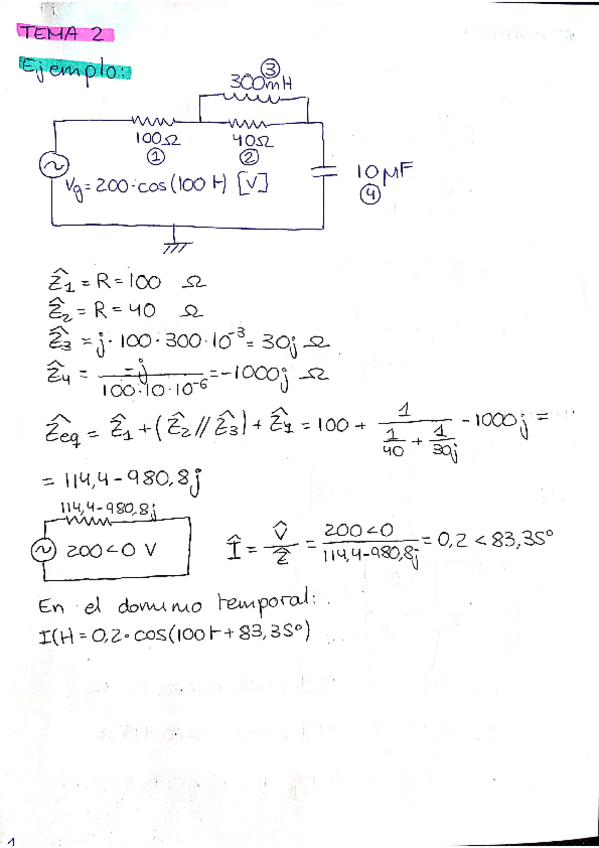 TEMA 2
Ejemplo:
③
300mH
100Ω
①
40Ω
②
Vg = 200·cos(100t) [V]
10μF
④
Ẑ1 = R = 100 Ω
Ẑ2 = R = 40 Ω
Ẑ3 = j·100·300·10^-3 = 30j Ω
Ẑ4 = -j / 100·10·10^-6 = -1000j Ω
Ẑeq = Ẑ1 + (Ẑ2 // Ẑ3) + Ẑ4 = 100 + 1 / (1/40 + 1/30j) - 1000j =
= 114,4 - 980,8j
114,4 - 980,8j
200<0 V
Î = V̂ / Ẑ = 200<0 / 114,4-980,8j = 0,2 < 83,35°
En el dominio temporal:
I(t) = 0,2·cos(100t + 83,35°)
1